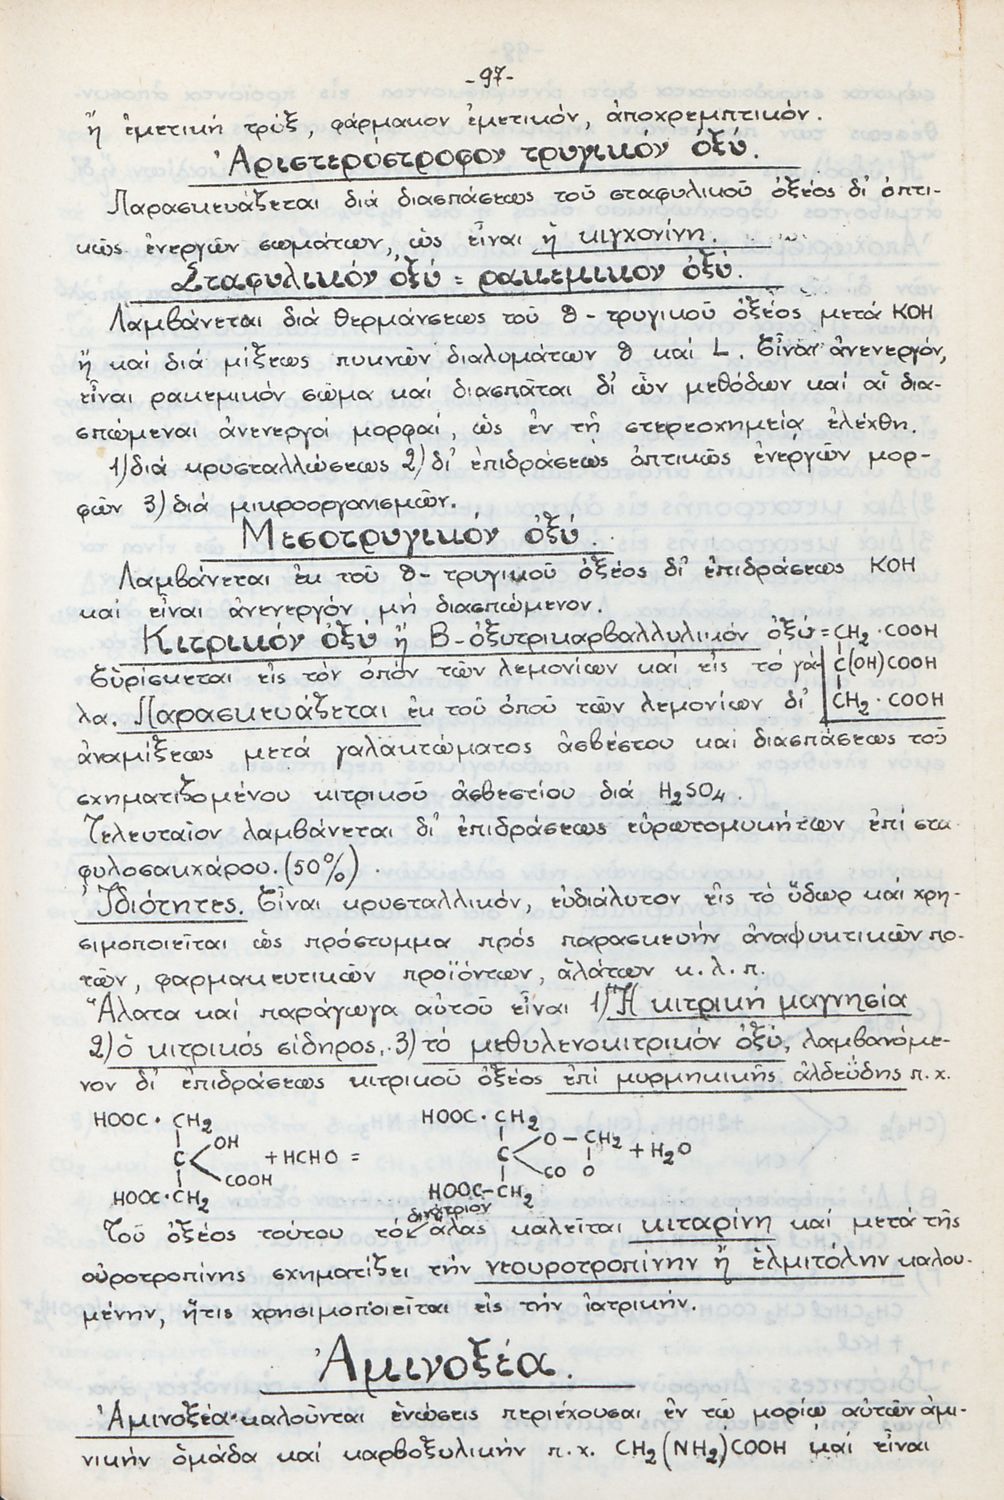 -97-
ἤ ἐμετική τρύξ, φάρμακον ἐμετικόν, ἀποχρεμπτικόν.
Ἀριστερόστροφον τρυγικόν ὀξύ.
Παρασκευάζεται διά διασπάσεως τοῦ σταφυλικοῦ ὀξέος δι' ὀπτι-
κῶς ἐνεργῶν σωμάτων, ὡς εἶναι ἡ κιγχονίνη.
Σταφυλικόν ὀξύ = ρακεμικον ὀξύ.
Λαμβάνεται διά θερμάνσεως τοῦ d - τρυγικοῦ ὀξέος μετά KOH
ἤ καί διά μίξεως πυκνῶν διαλυμάτων d καί L. Εἶναι ἀνενεργόν,
εἶναι ρακεμικόν σῶμα καί διασπᾶται δι' ὧν μεθόδων καί αἱ δια-
σπώμεναι ἀνενεργοί μορφαί, ὡς ἐν τῇ στερεοχημείᾳ ἐλέχθη.
1) διά κρυσταλλώσεως 2) δι' ἐπιδράσεως ὀπτικῶς ἐνεργῶν μορ-
φῶν 3) διά μικροοργανισμῶν.
Μεσοτρυγικόν ὀξύ.
Λαμβάνεται ἐκ τοῦ d - τρυγικοῦ ὀξέος δι' ἐπιδράσεως KOH
καί εἶναι ἀνενεργόν μή διασπώμενον.
Κιτρικόν ὀξύ ἤ Β-ὀξυτρικαρβαλλυλικόν ὀξύ = CH2·COOH
Εὑρίσκεται εἰς τόν ὀπόν τῶν λεμονίων καί εἰς τό γά- C(OH)COOH
λα. Παρασκευάζεται ἐκ τοῦ ὀποῦ τῶν λεμονίων δι' CH2·COOH
ἀναμίξεως μετά γαλακτώματος ἀσβέστου καί διασπάσεως τοῦ
σχηματιζομένου κιτρικοῦ ἀσβεστίου διά H2SO4.
Τελευταῖον λαμβάνεται δι' ἐπιδράσεως εὐρωτομυκήτων ἐπί στα
φυλοσακχάρου. (50%).
Ἰδιότητες. Εἶναι κρυσταλλικόν, εὐδιάλυτον εἰς τό ὕδωρ καί χρη-
σιμοποιεῖται ὡς πρόστυμμα πρός παρασκευήν ἀναψυκτικῶν πο-
τῶν, φαρμακευτικῶν προϊόντων, ἁλάτων κ.λ.π.
Ἅλατα καί παράγωγα αὐτοῦ εἶναι 1) Ἡ κιτρική μαγνησία
2) ὁ κιτρικός σίδηρος, 3) τό μεθυλενοκιτρικόν ὀξύ, λαμβανόμε-
νον δι' ἐπιδράσεως κιτρικοῦ ὀξέος ἐπί μυρμηκικῆς ἀλδεΰδης π.χ.
HOOC·CH2 HOOC·CH2
C OH COOH + HCHO = C O-CH2 CO O + H2O
HOOC·CH2 HOOC-CH2
δινάτριον
Τοῦ ὀξέος τούτου τό ἅλας καλεῖται κιταρίνη καί μετά τῆς
οὐροτροπίνης σχηματίζει τήν νεουροτροπίνην ἤ ἑλμιτόλην καλου-
μένην, ἥτις χρησιμοποιεῖται εἰς τήν ἰατρικήν.
Ἀμινοξέα.
Ἀμινοξέα καλοῦνται ἑνώσεις περιέχουσαι ἐν τῷ μορίῳ αὐτῶν ἀμι-
νικήν ὁμάδα καί καρβοξυλικήν π.χ. CH2(NH2)COOH καί εἶναι